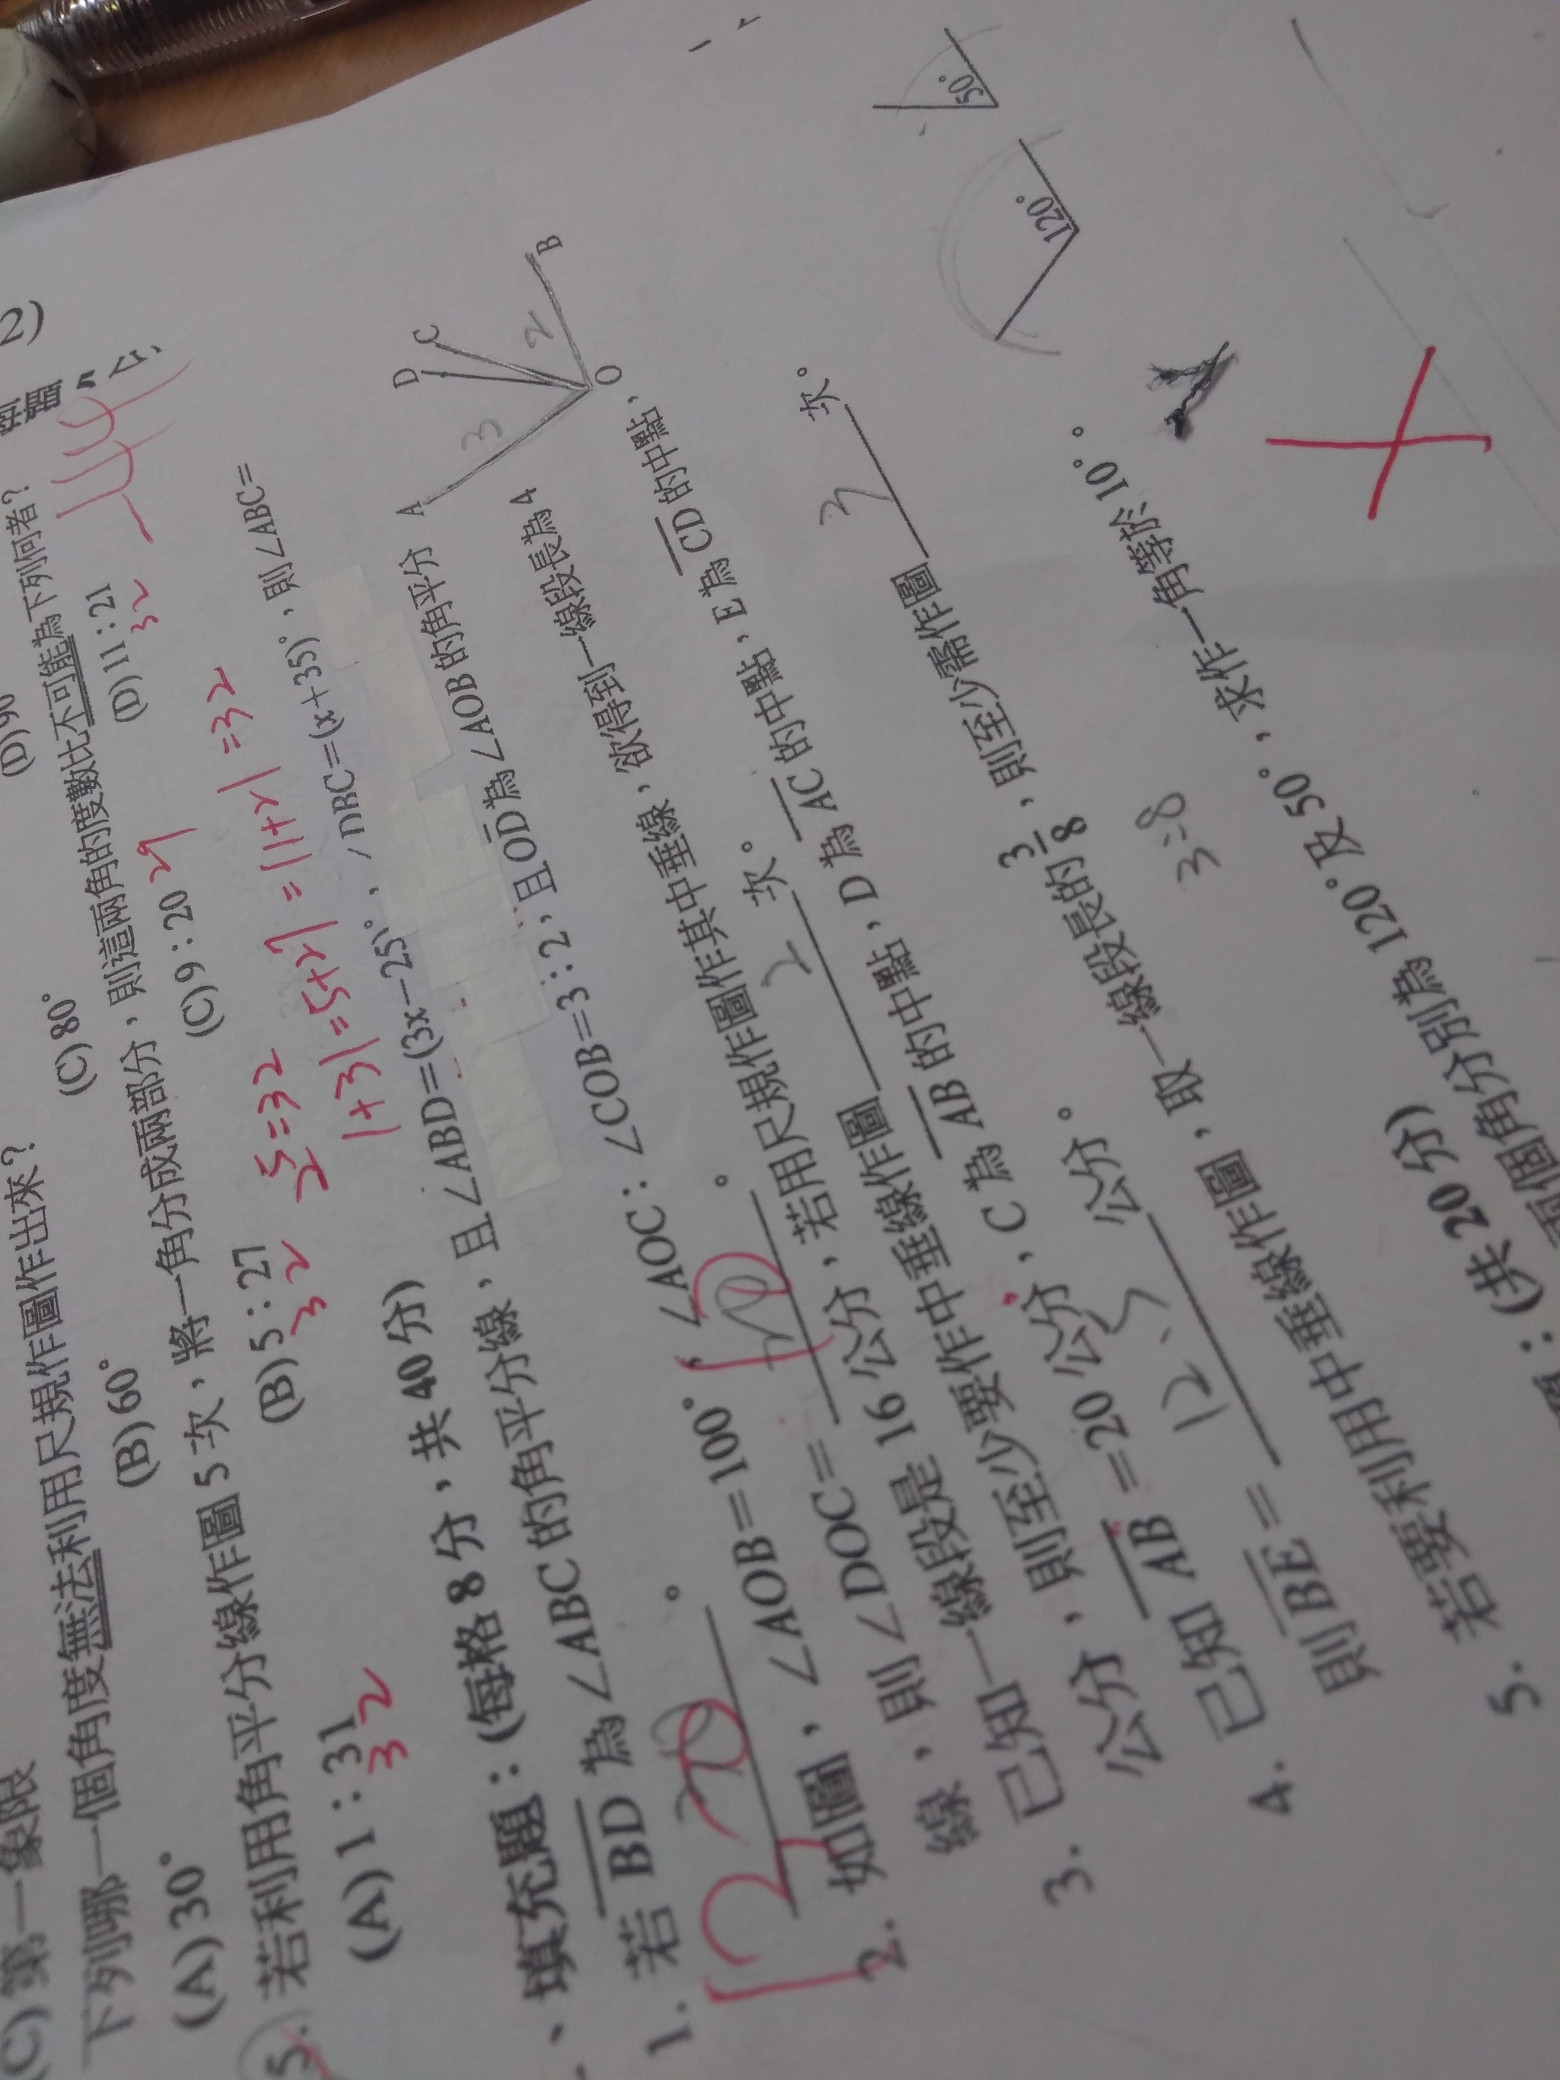 2)
(C) 第一象限
(D)90
下列哪一個角度無法利用尺規作圖作出來?
(A)30° (B)60° (C)80°
5. 若利用角平分線作圖 5 次,將一角分成兩部分,則這兩角的度數比不可能為下列何者?
(A)1:31 (B)5:27 (C)9:20 (D)11:21
32 32 29 32
2⁵=32
1+31=5+27=11+21=32
、填充題:(每格 8 分,共 40 分)
1. 若 BD 為∠ABC 的角平分線,且∠ABD=(3x−25)°、∠DBC=(x+35)°,則∠ABC=
130。
2. 如圖,∠AOB=100°,∠AOC:∠COB=3:2,且OD為∠AOB 的角平分
線,則∠DOC= 10。
A D C B O
3 2
3. 已知一線段是 16 公分,若用尺規作圖作其中垂線,欲得到一線段長為 4
公分,則至少要作中垂線作圖 2 次。
4. 已知 AB =20 公分,C 為 AB 的中點,D 為 AC 的中點,E 為 CD 的中點,
則 BE = 12.5 公分。
5. 若要利用中垂線作圖,取一線段長的 3/8,則至少需作圖 3 次。
3:8
:(共 20 分)
兩個角分別為 120°及 50°,求作一角等於 10°。
120°
50°